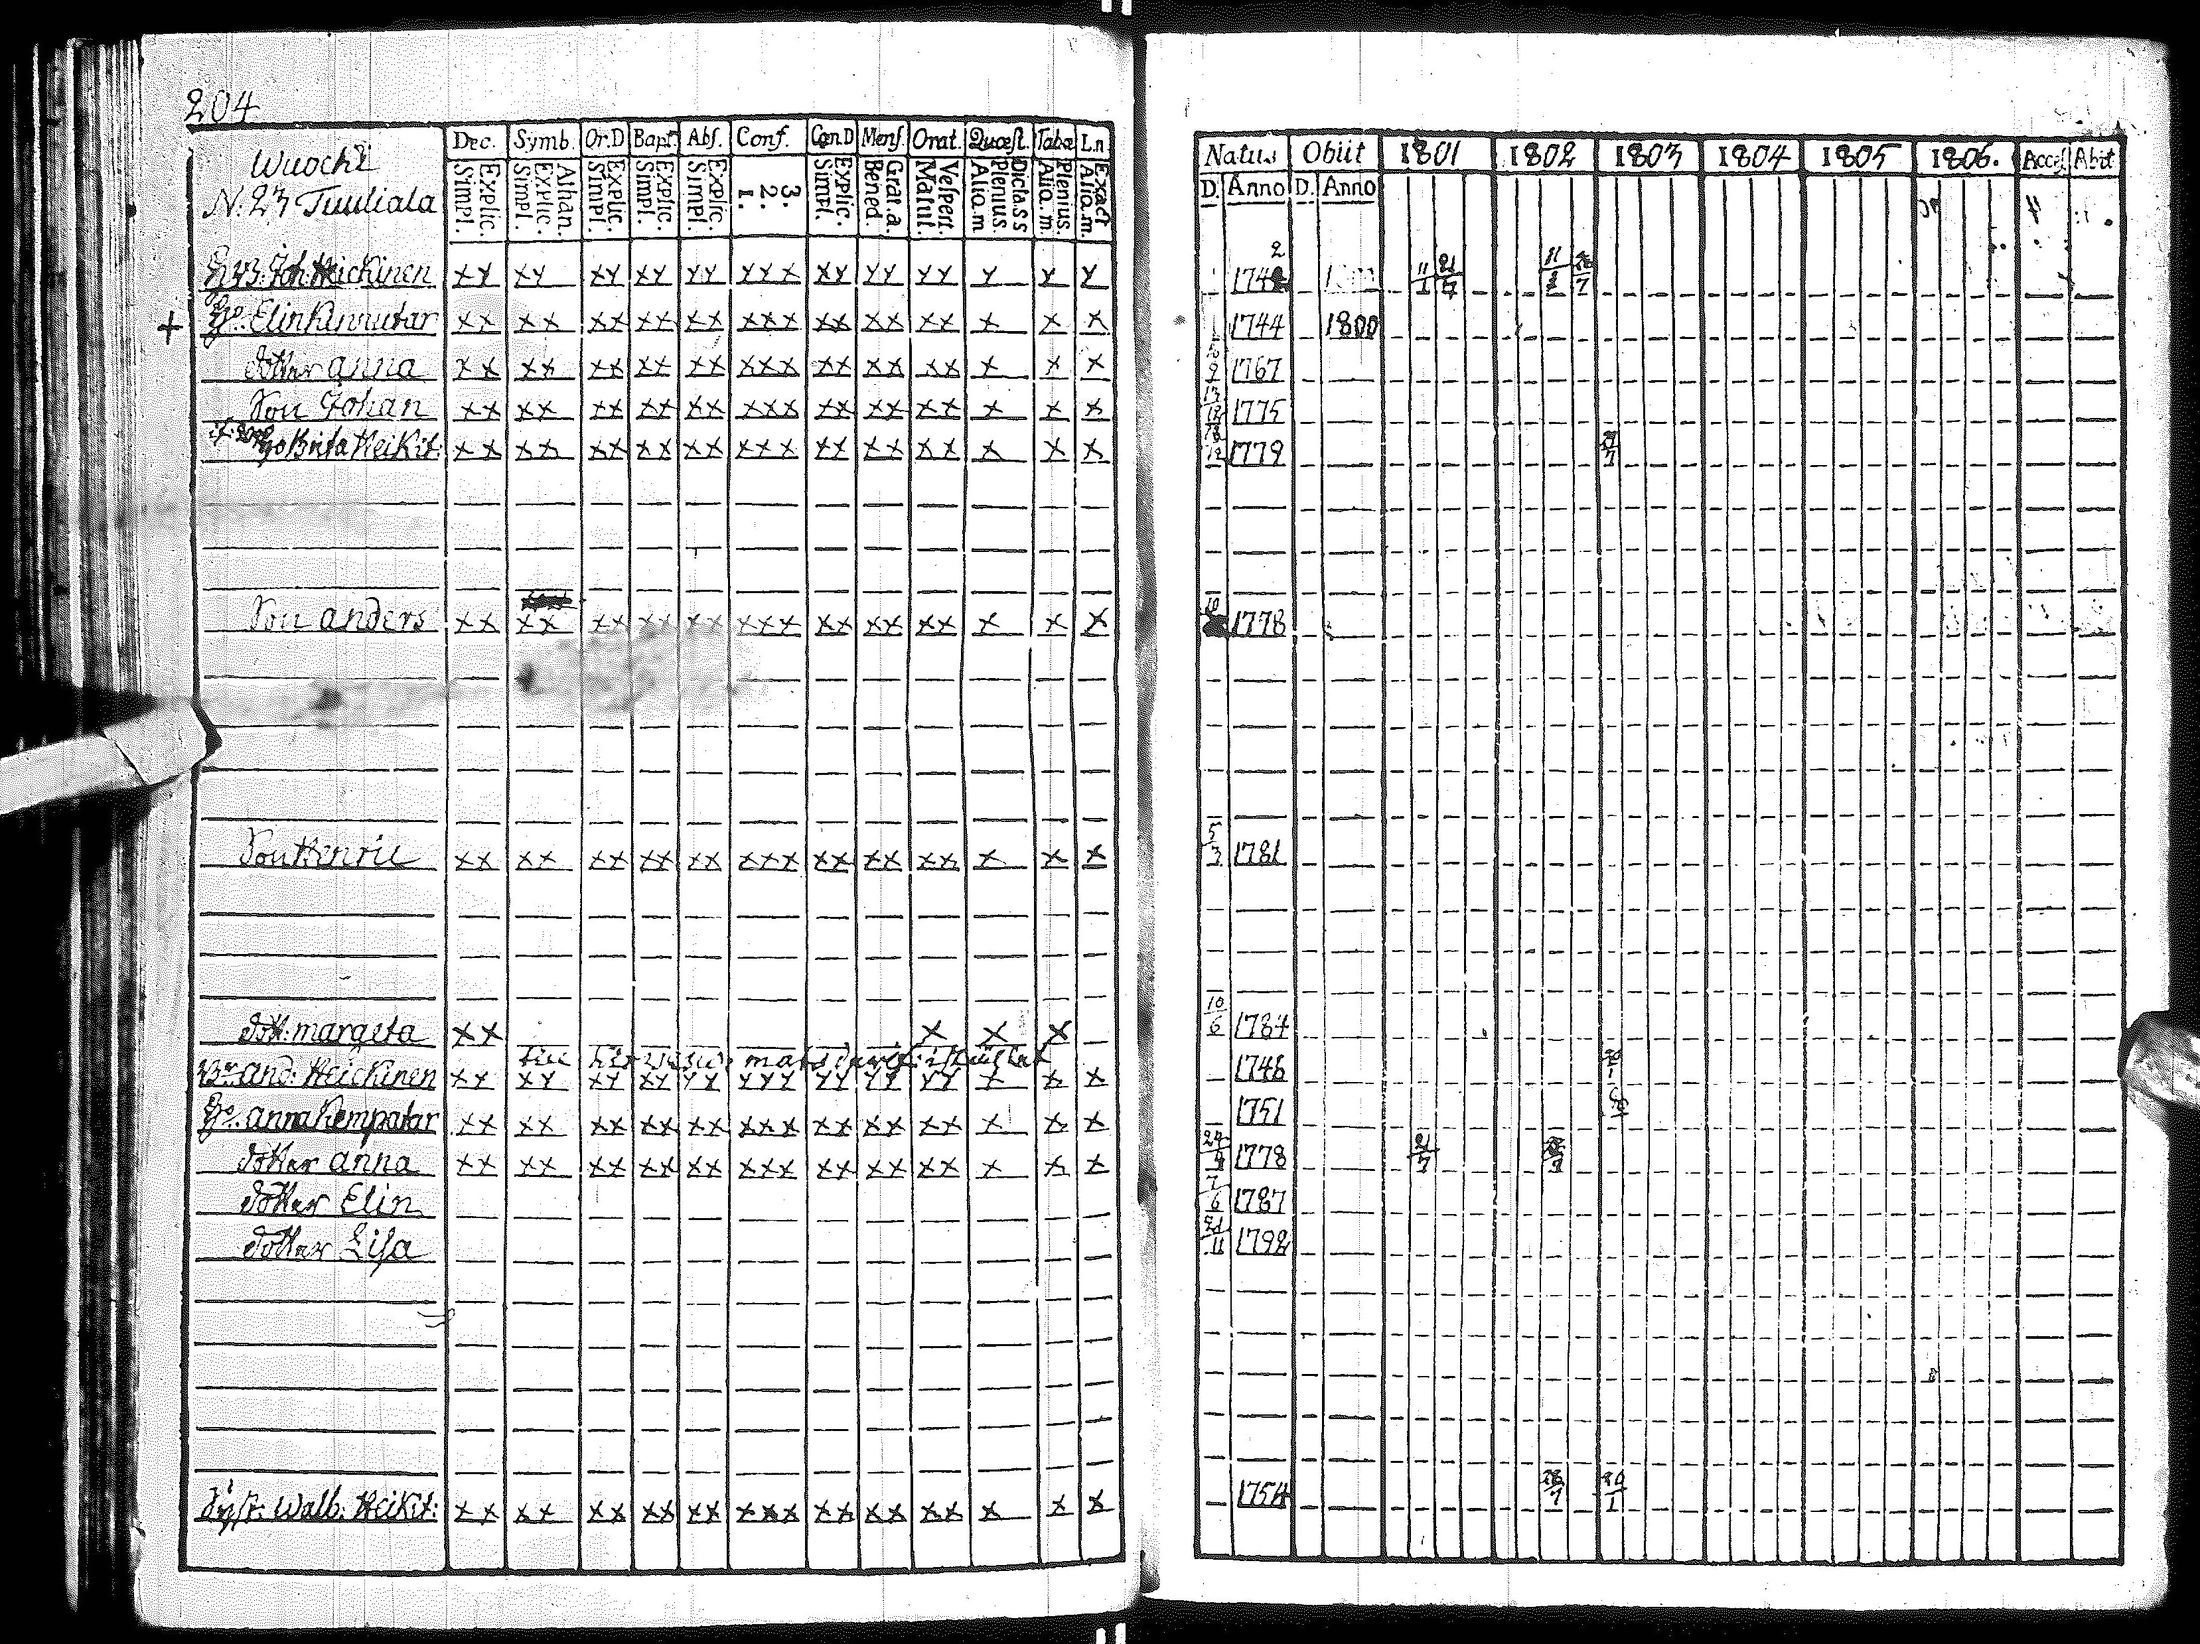 204
Dec. Symb. Or.D Bapt. Abs. Conf. Cæn.D Mens. Orat. Quæst. Tabæ L.n.
Natus Obiit 1801 1802 1803 1804 1805 1806. Acces. Abiit
Wuochi
N. 23 Tuuliala
Explic. Simpl. Athan. Explic. Simpl. Explic. Simpl. Explic. Simpl. Explic. Simpl. 3. 2. 1. Explic. Simpl. Grat.a. Bened. Vespert. Matut. Dictass Plenius. Aliq.m Plenius. Aliq.m. Exact Aliq.m.
D. Anno D. Anno
Joh Heickinen xx xx xx xx xx xxx xx xx xx x x x 2 174 11/1 21/7 11/2 7
+ Elin Kinnutar xx xx xx xx xx xxx xx xx xx x x x 1744 1800
dotter anna xx xx xx xx xx xxx xx xx xx x x x 9 1767
Son Johan xx xx xx xx xx xxx xx xx xx x x x 1775
Brita Heikit: xx xx xx xx xx xxx xx xx xx x x x 1779
Son anders xx xx xx xx xx xxx xx xx xx x x x 1778
Son Henric xx xx xx xx xx xxx xx xx xx x x x 5/3 1781
dott: margeta xx x x x 10/6 1784
and: Heickinen xx xx xx xx xx xxx xx xx xx x x x 1748
anna Kempatar xx xx xx xx xx xxx xx xx xx x x x 1751
dotter anna xx xx xx xx xx xxx xx xx xx x x x 1778 21/7
dotter Elin 7/6 1787
dotter Lisa 11 1792
Walb: Heikit: xx xx xx xx xx xxx xx xx xx x x x 1754